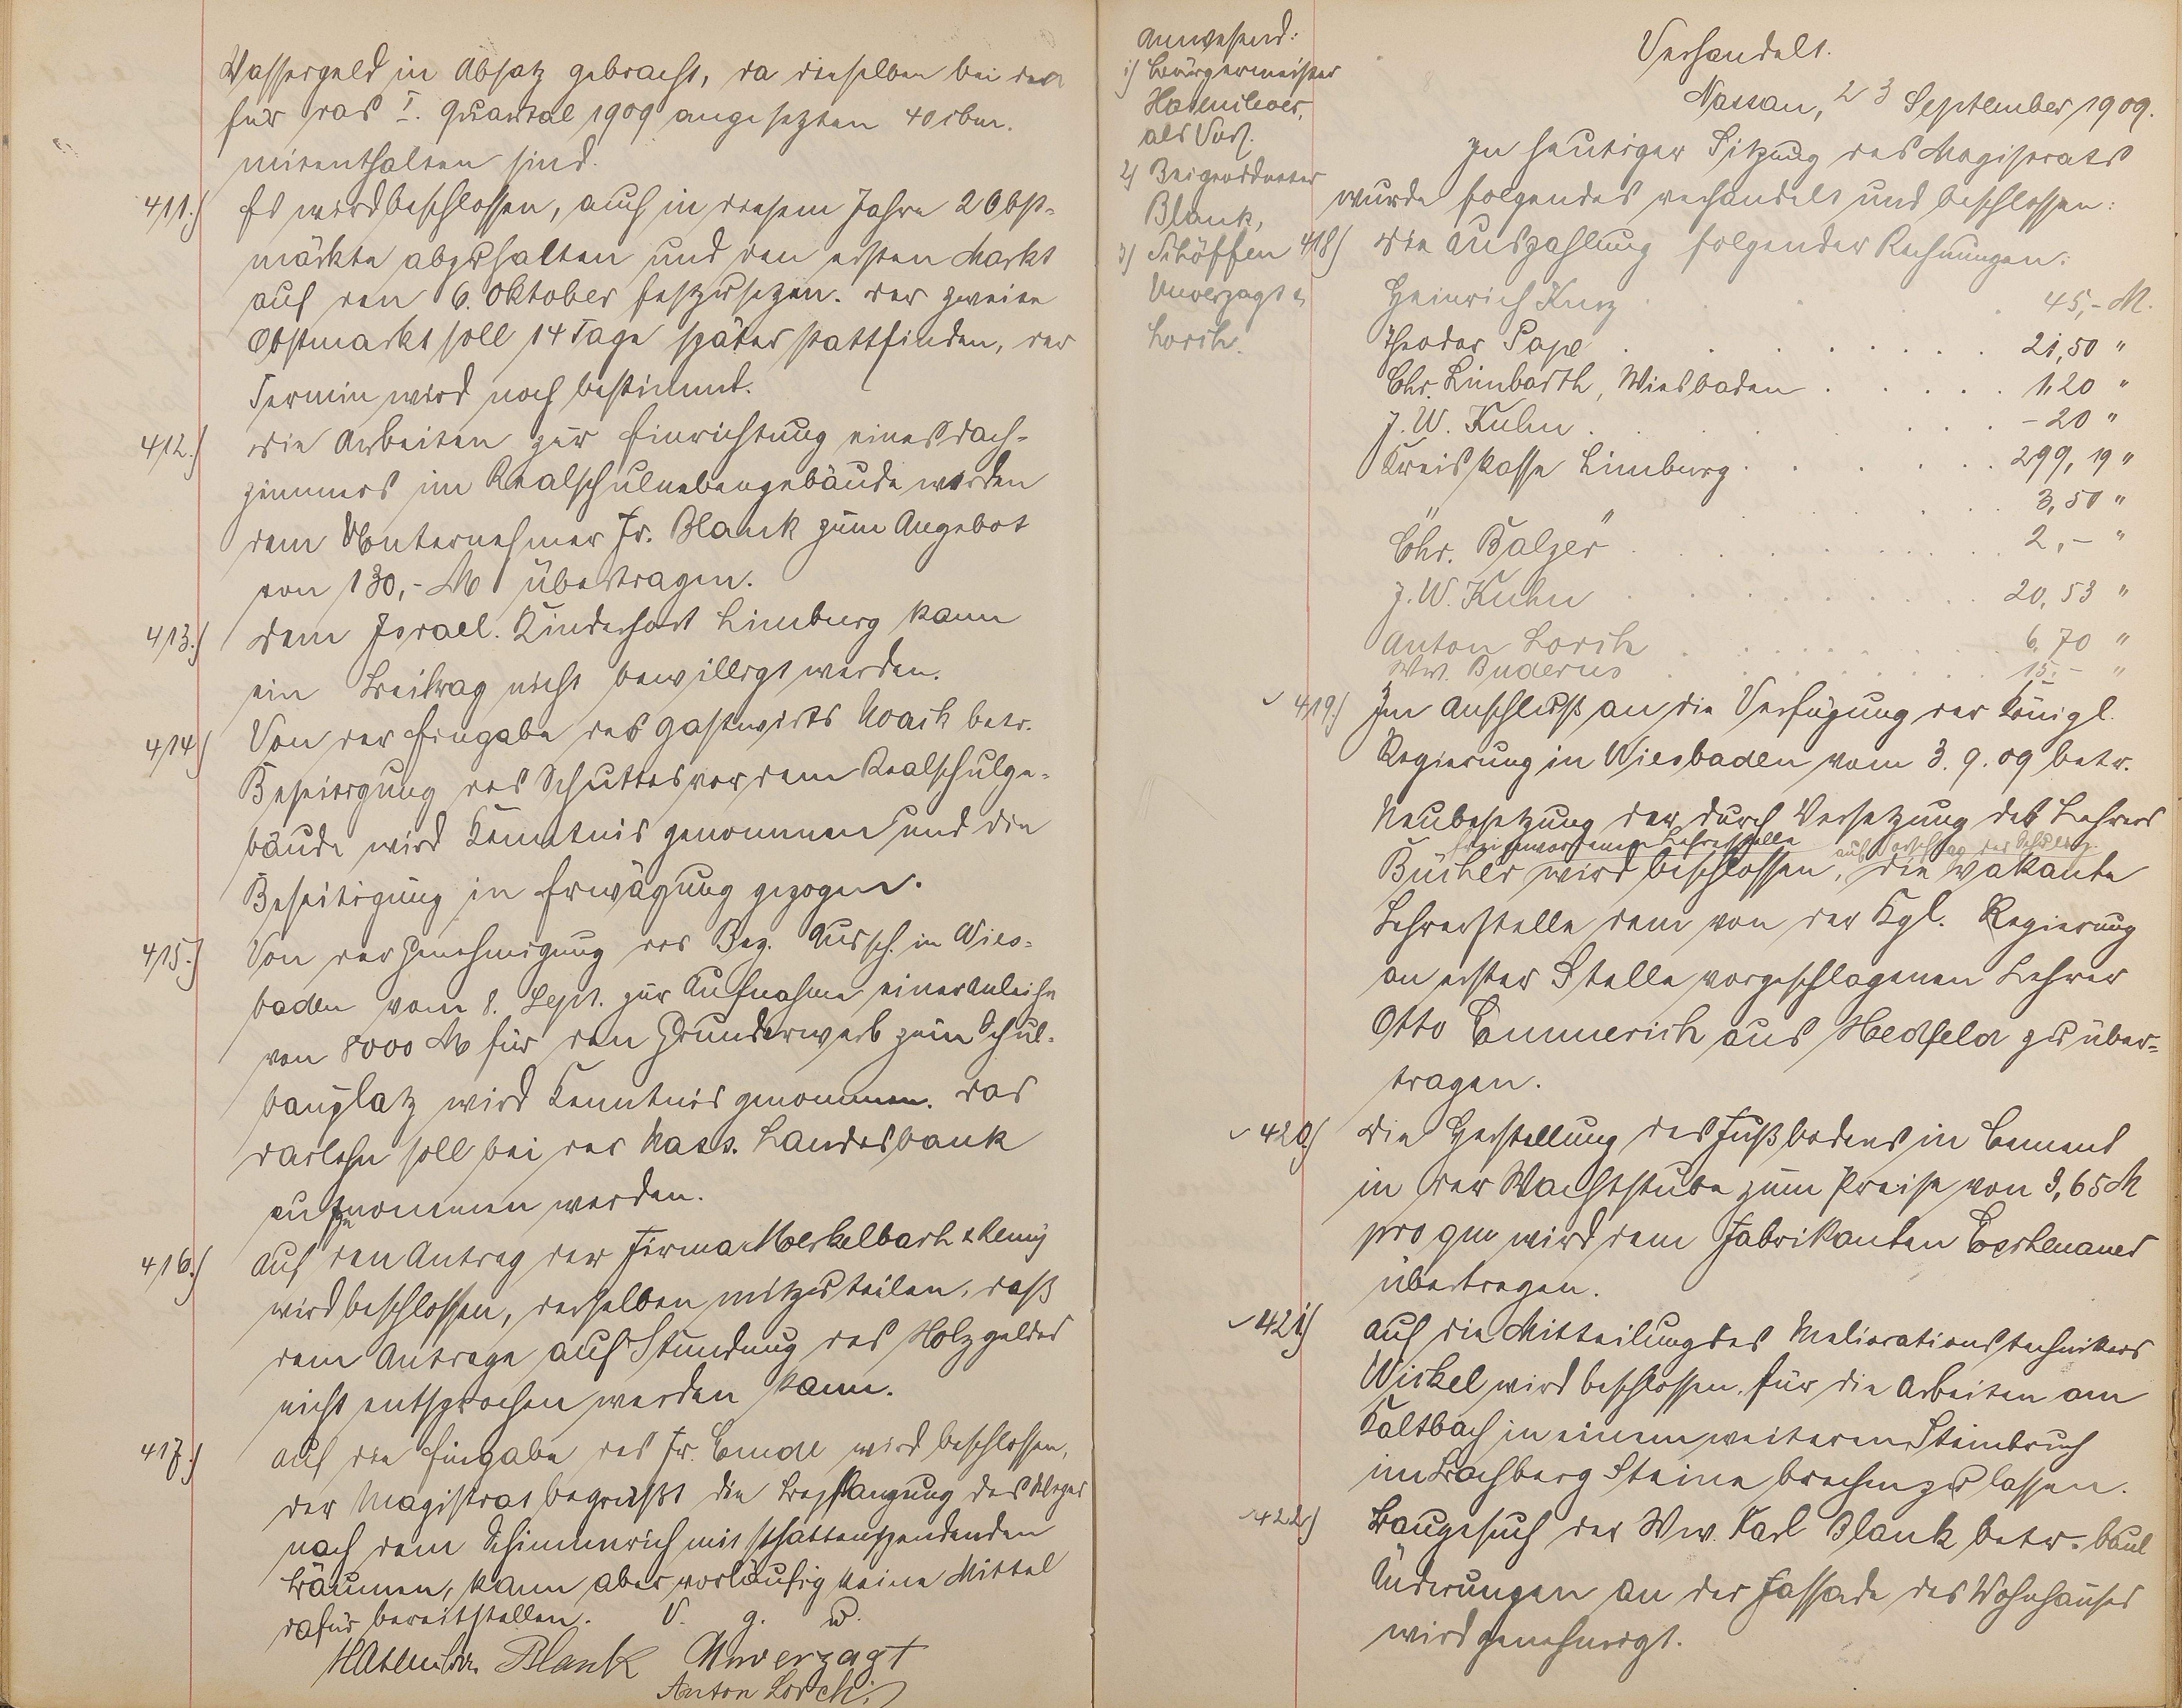 Wassergeld in Absatz gebracht, da dieselben bei den
für das I. Quartal 1909 angesetzten 40 cbm.
mitenthalten sind.
411.) Es wird beschlossen, auch in diesem Jahre 2 Obst-
märkte abzuhalten und den ersten Markt
auf den 6. Oktober festzusetzen. Der zweite
Obstmarkt soll 14 Tage später stattfinden, der
Termin wird noch bestimmt.
412.) Die Arbeiten zur Einrichtung eines Dach-
zimmers im Realschulnebengebäude werden
dem Unternehmer Fr. Blank zum Angebot
von 130,- M übertragen.
413.) Dem Israel. Kinderhort Limburg kann
ein Beitrag nicht bewilligt werden.
414) Von der Eingabe des Gastwirts Noack betr.
Beseitigung des Schuttes vor dem Realschulge-
bäude wird Kenntnis genommen und die
Beseitigung in Erwägung gezogen.
415.) Von der Genehmigung des Bez. Aussch. in Wies-
baden vom 8. Sept. zur Aufnahme einer Anleihe
von 8000 M für den Grunderwerb zum Schul-
bauplatz wird Kenntnis genommen. Das
Darlehn soll bei der Nass. Landesbank
aufgenommen werden.
416.) Auf den Antrag der Firma Merkelbach & Remy
wird beschlossen, derselben mitzuteilen, daß
dem Antrage auf Stundung des Holzgeldes
nicht entsprochen werden kann.
417.) Auf die Eingabe des Fr. Emde wird beschlossen,
der Magistrat begrüßt die Bepflanzung des Weges
nach dem Schimmerich mit schattenspendenden
Bäumen, kann aber vorläufig keine Mittel
dafür bereitstellen. V. g. u.
Blank Unverzagt
Anton Lorch
Anwesend:
1) Bürgermeister
Hasenclever,
als Vors.
2) Beigeordneter
Blank,
3) Schöffen
Unverzagt &
Lorch.
Verhandelt.
Nassau, 23 September 1909.
In heutiger Sitzung des Magistrats
wurde folgendes verhandelt und beschlossen:
418) Die Auszahlung folgender Rechnungen:
Heinrich Kurz . . . 45,- M.
Theodor Pape . . . 21,50 "
Chr. Limbarth, Wiesbaden . . . 1,20 "
J. W. Kuhn . . . -20 "
Kreiskasse Limburg . . . 299,19 "
" " . . . 3,50 "
Chr. Balzer . . . 2,- "
J. W. Kuhn . . . 20,53 "
Anton Lorch . . . 6,70 "
Ww. Buderus . . . 15,- "
419.) Im Anschluß an die Verfügung der Königl.
Regierung in Wiesbaden vom 3. 9. 09 betr.
Neubesetzung der durch Versetzung des Lehrers
frei gewordenen Lehrerstelle auf Vorschlag der Schuldep.
Bücher wird beschlossen, die vakante
Lehrerstelle dem von der Kgl. Regierung
an erster Stelle vorgeschlagenen Lehrer
Otto Emmerich aus Medfeld zu über-
tragen.
420) Die Herstellung des Fußbodens in Cement
in der Wachtstube zum Preise von 3,65 M
pro qm wird dem Fabrikanten Eschenauer
übertragen.
421) Auf die Mitteilung des Meliorationstechnikers
Wickel wird beschlossen, für die Arbeiten am
Kaltbach in einem weiteren Steinbruch
im Bachberg Steine brechen zu lassen.
422) Baugesuch der Ww. Karl Blank betr. baul
Änderungen an der Fassade des Wohnhauses
wird genehmigt.